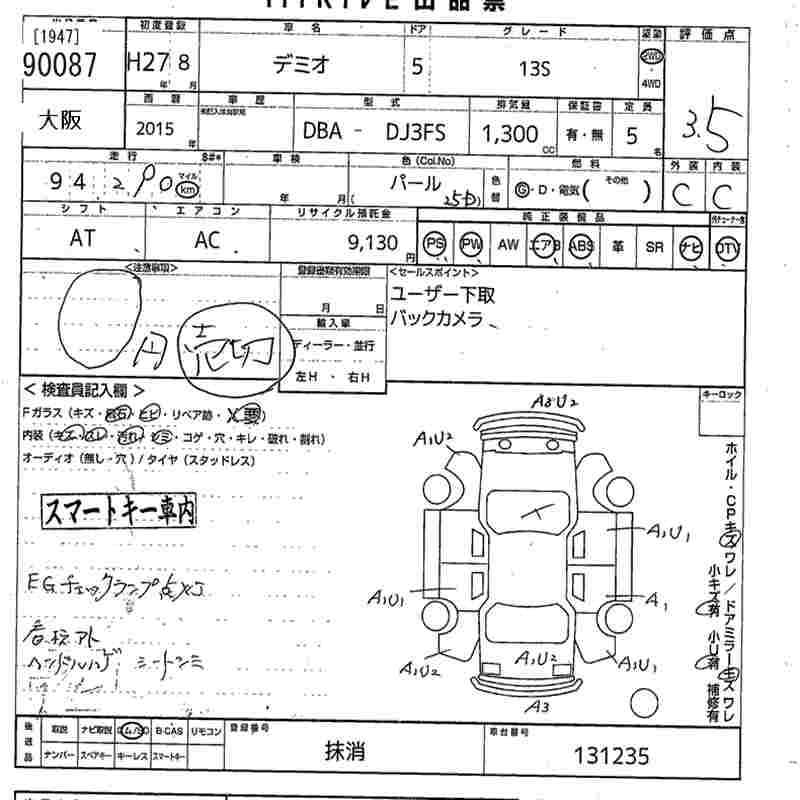 [1947]
90087
初度登録
H27 8
年 月
車名
デミオ
ドア
5
グレード
13S
2WD
4WD
評価点
3.5
大阪
西暦
2015
年
車歴
型式
DBA - DJ3FS
排気量
1,300
CC
保証書
有・無
定員
5
名
走行
94 290
マイル
km
車検
年 月
色(Col.No)
パール
25D
色替
燃料
G・D・電気( その他 )
外装
C
内装
C
シフト
AT
エアコン
AC
リサイクル預託金
9,130 円
純正装備品
PS
PW
AW
エアB
ABS
革
SR
ナビ
DTV
<注意事項>
0円
売切
登録書類有効期限
月 日
輸入車
ディーラー・並行
左H ・ 右H
<セールスポイント>
ユーザー下取
バックカメラ
キーロック
< 検査員記入欄 >
Fガラス (キズ・飛石・ヒビ・リペア跡・X要)
内装 (キズ・ ・汚れ・シミ・コゲ・穴・キレ・破れ・割れ)
オーディオ (無し・穴) / タイヤ (スタッドレス)
スマートキー車内
EGチェックランプ点灯
看板アト
ハンドルハゲ シートシミ
A3U2
A,U2
A,U1
A,U1
A1
A,U2
A,U2
A,U1
A3
ホイル・CPキズワレ / ドアミラーキズワレ
小キズ有 小U有 補修有
後送品
取説
ナビ取説
B-CAS
リモコン
ナンバー
スペアキー
キーレス
スマートキー
登録番号
抹消
車台番号
131235